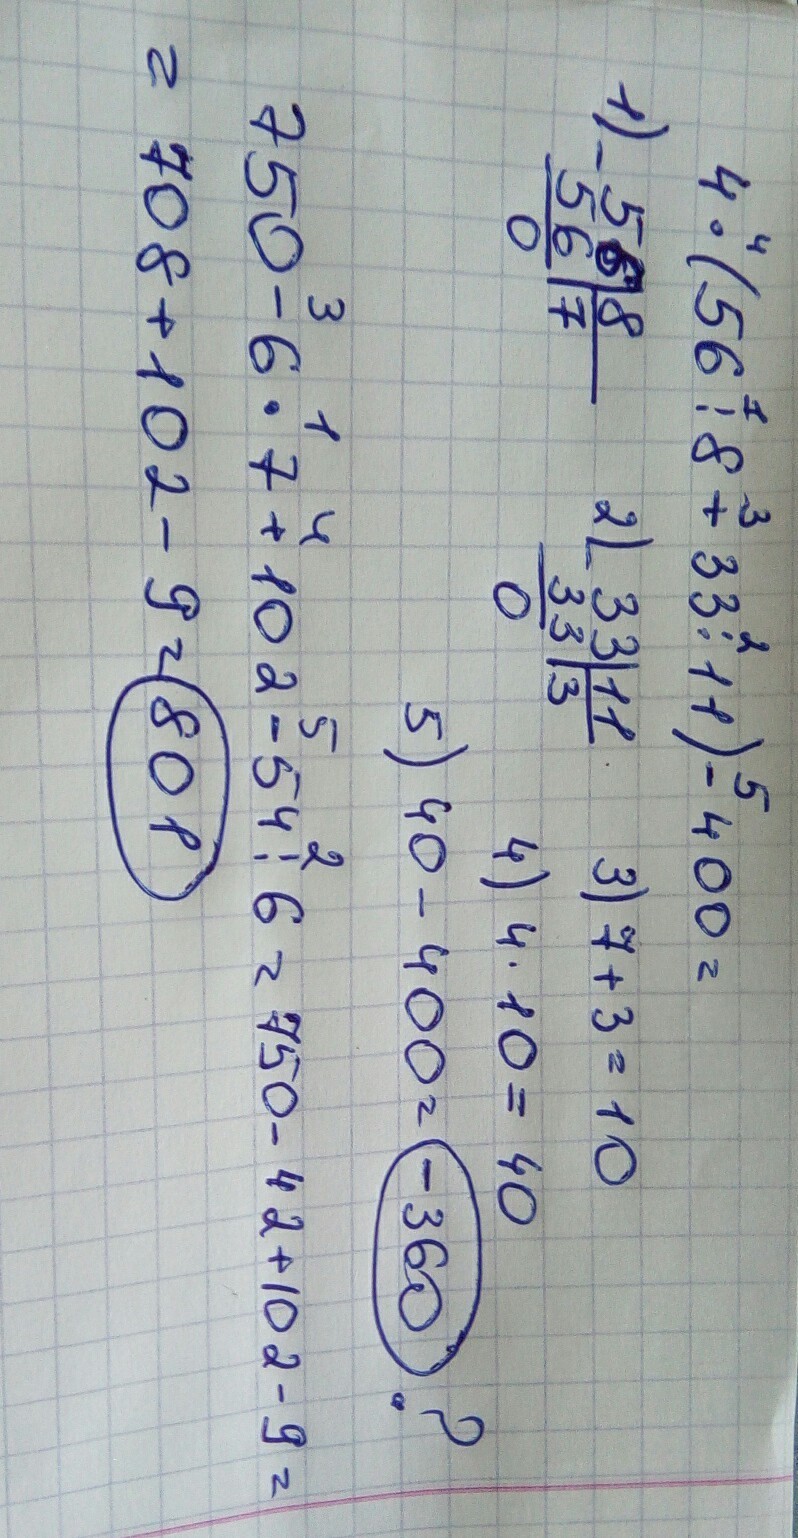 4 · (56 : 8 + 33 : 11) - 400 =
4 1 3 2 5
1) - 56 | 8 2) - 33 | 11 3) 7 + 3 = 10
56 | 7 33 | 3
0 0 4) 4 · 10 = 40
5) 40 - 400 = -360 ?
3 1 4 5 2
750 - 6 · 7 + 102 - 54 : 6 = 750 - 42 + 102 - 9 =
= 708 + 102 - 9 = 801